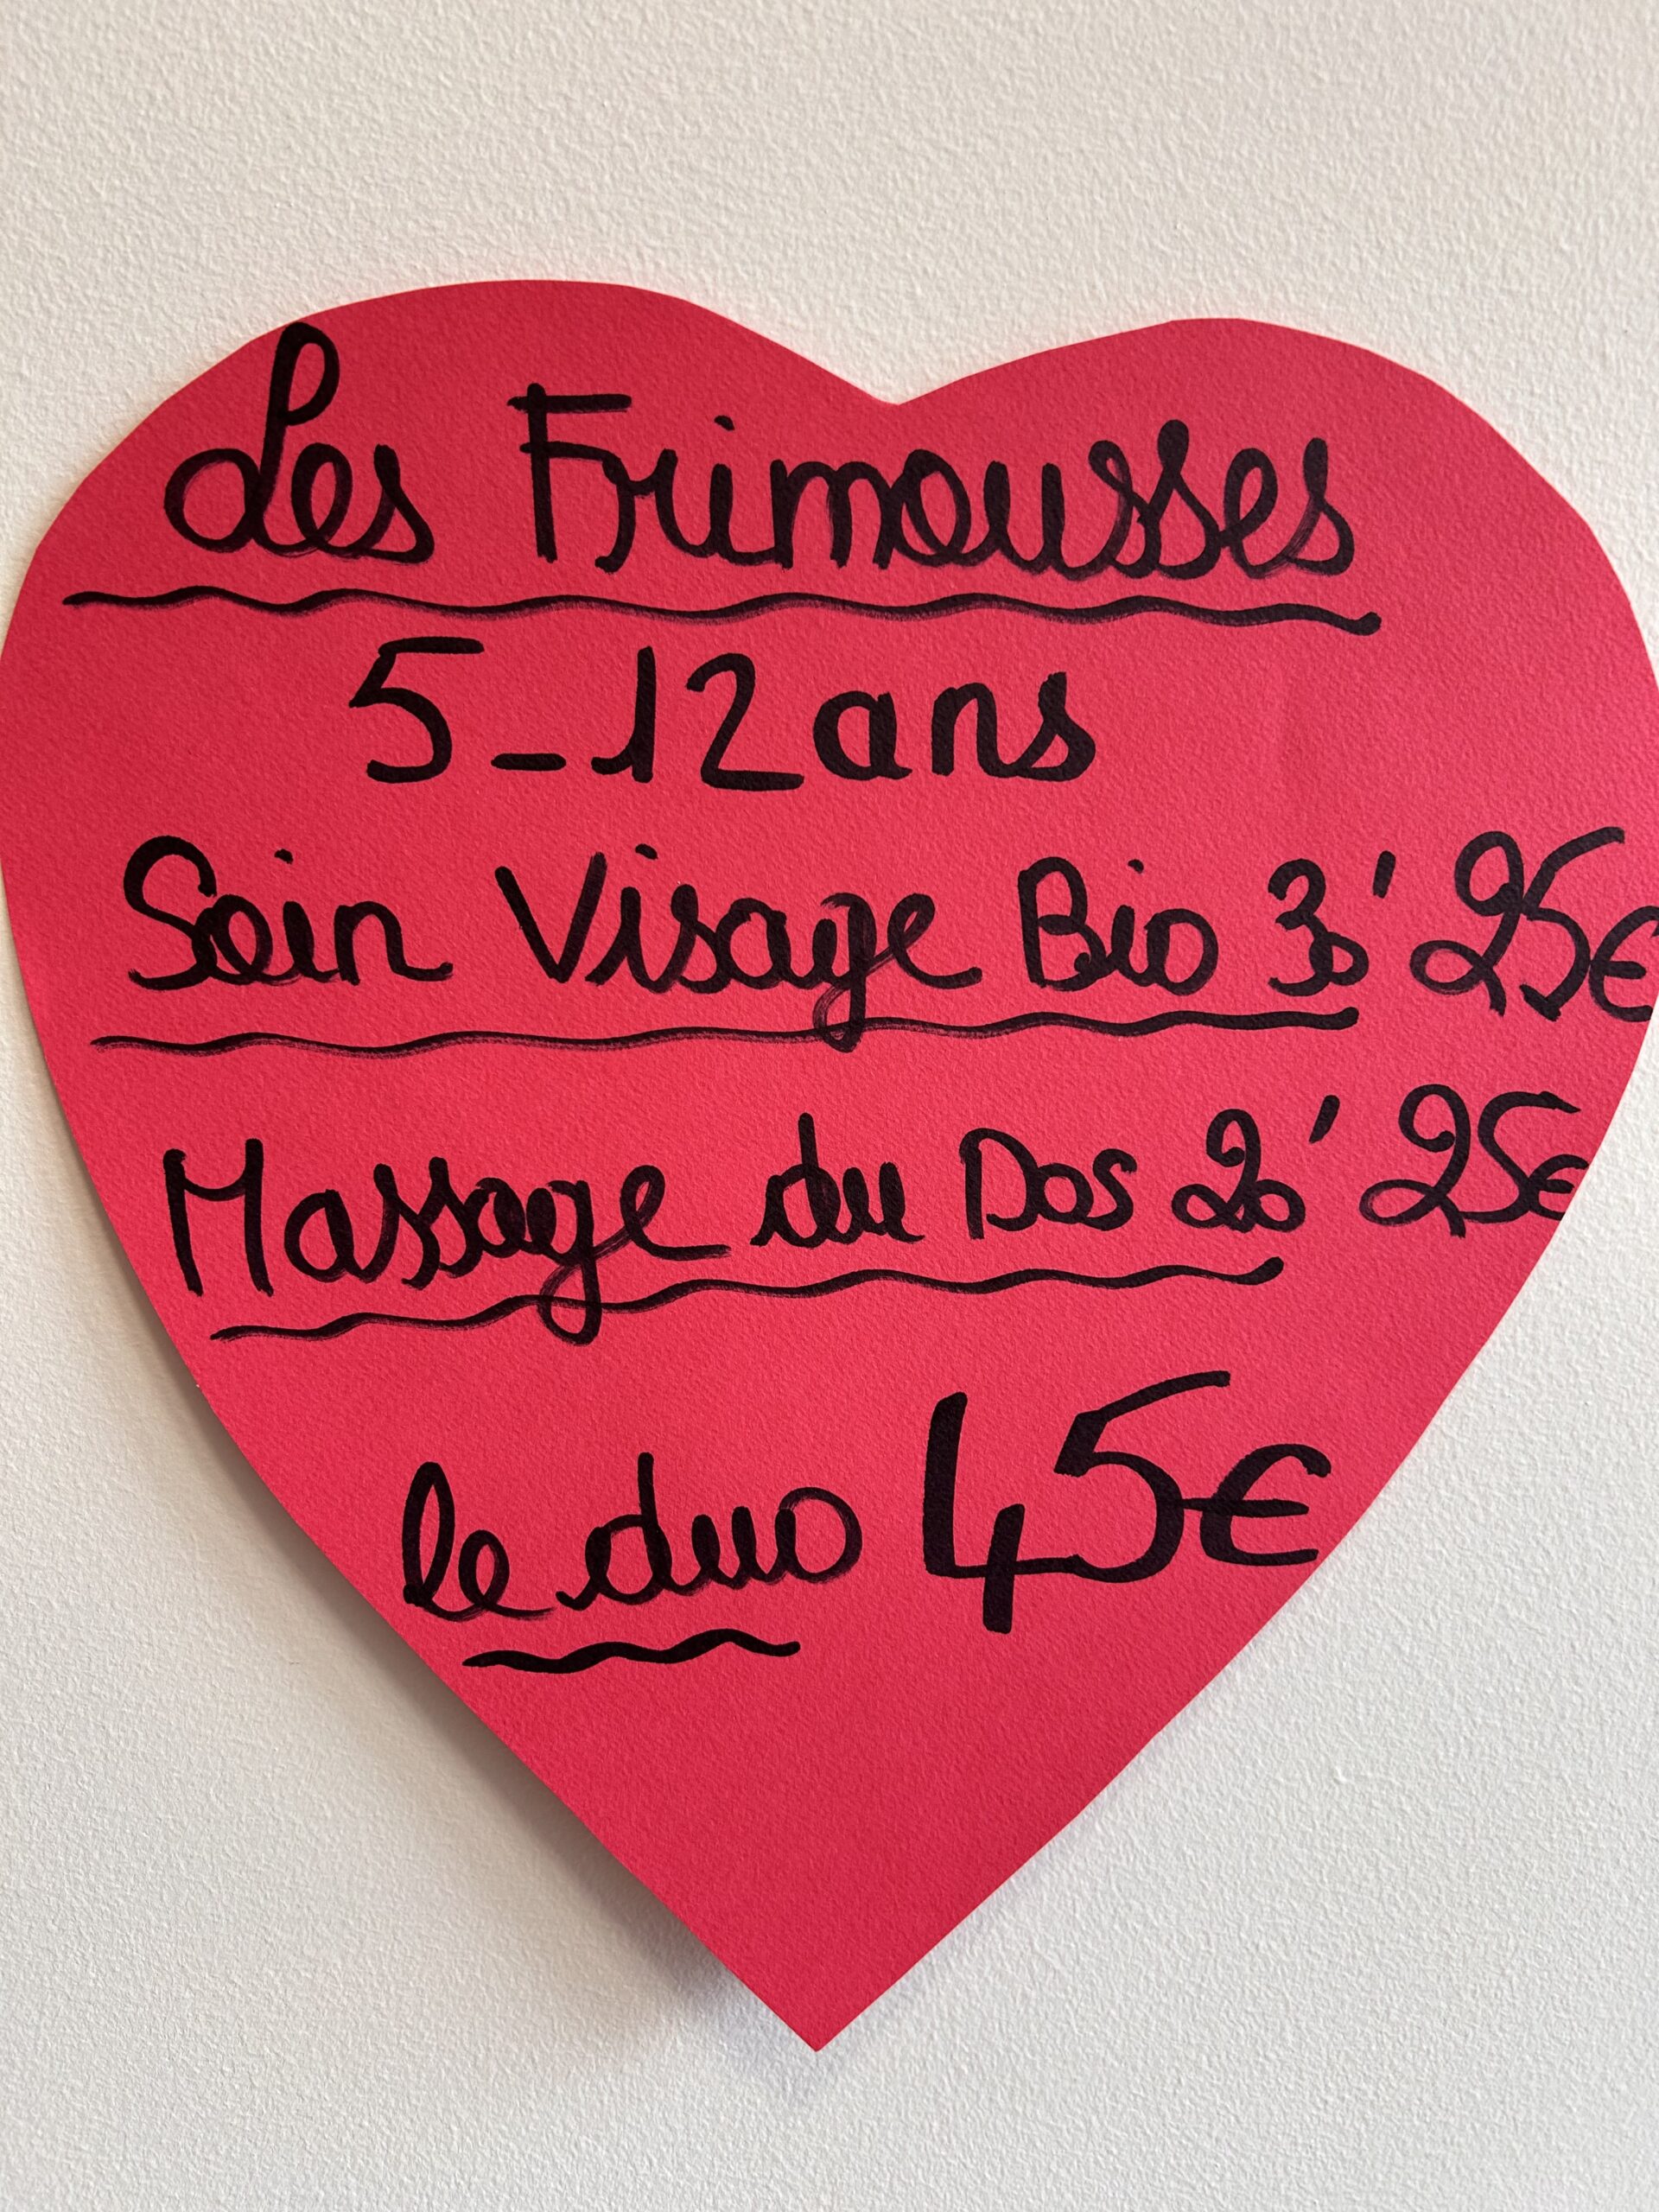 Les Frimousses
5-12 ans
Soin Visage Bio 30' 25€
Massage du Dos 20' 25€
le duo 45€